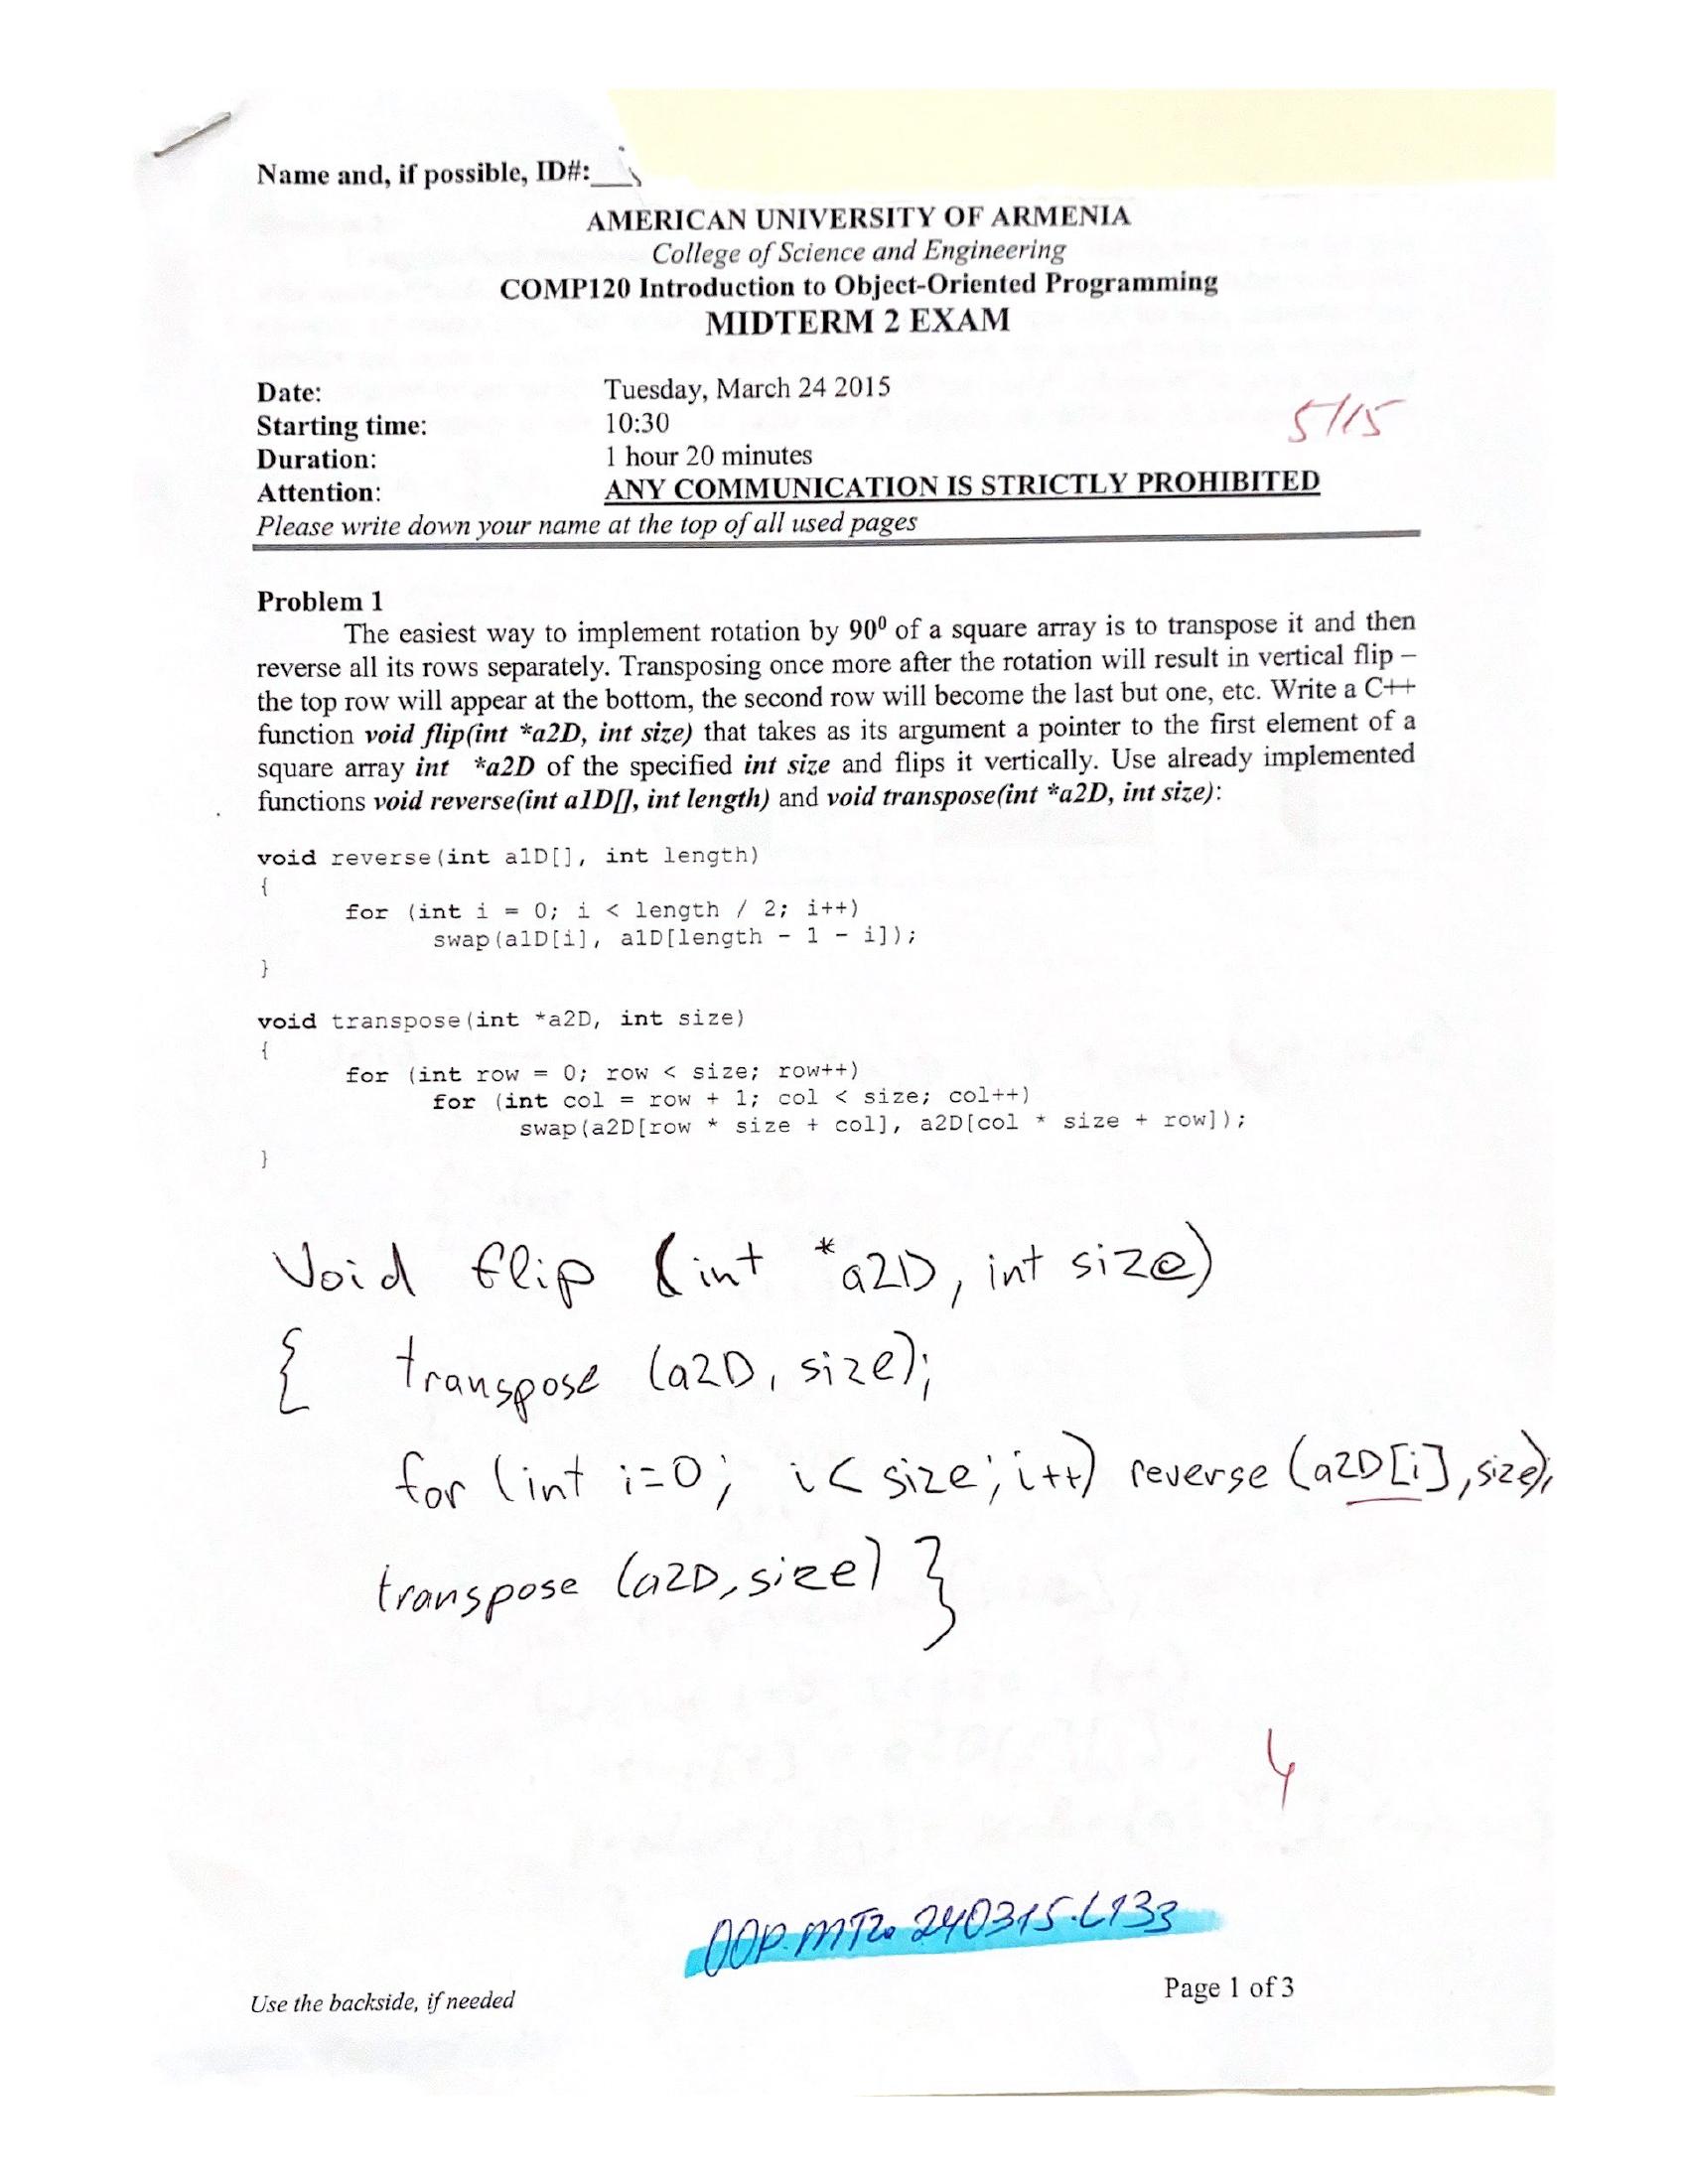 Name and, if possible, ID#:
AMERICAN UNIVERSITY OF ARMENIA
College of Science and Engineering
COMP120 Introduction to Object-Oriented Programming
MIDTERM 2 EXAM
Date: Tuesday, March 24 2015
5/15
Starting time: 10:30
Duration: 1 hour 20 minutes
Attention: ANY COMMUNICATION IS STRICTLY PROHIBITED
Please write down your name at the top of all used pages
Problem 1
The easiest way to implement rotation by 90⁰ of a square array is to transpose it and then
reverse all its rows separately. Transposing once more after the rotation will result in vertical flip –
the top row will appear at the bottom, the second row will become the last but one, etc. Write a C++
function void flip(int *a2D, int size) that takes as its argument a pointer to the first element of a
square array int *a2D of the specified int size and flips it vertically. Use already implemented
functions void reverse(int a1D[], int length) and void transpose(int *a2D, int size):
void reverse(int a1D[], int length)
{
for (int i = 0; i < length / 2; i++)
swap(a1D[i], a1D[length - 1 - i]);
}
void transpose(int *a2D, int size)
{
for (int row = 0; row < size; row++)
for (int col = row + 1; col < size; col++)
swap(a2D[row * size + col], a2D[col * size + row]);
}
Void flip (int *a2D, int size)
{ transpose (a2D, size);
for (int i=0; i< size; i++) reverse (a2D[i], size);
transpose (a2D, size) }
4
OOP.MT2.240315.L133
Use the backside, if needed
Page 1 of 3